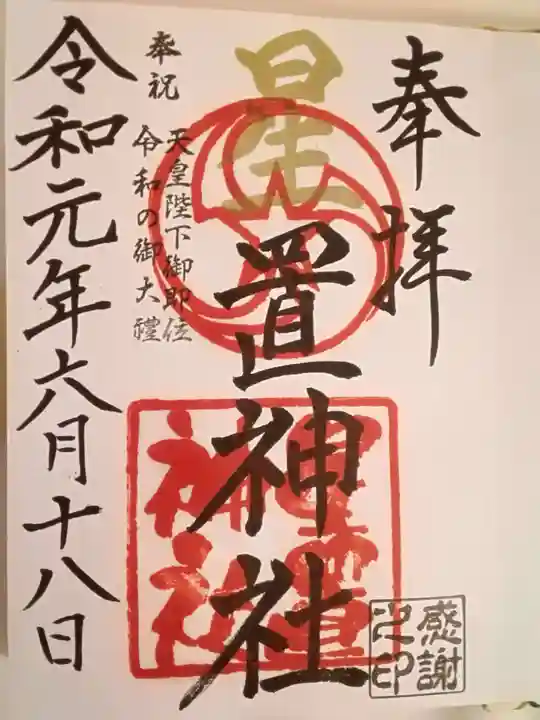 奉拝
星置神社
星置神社
感謝
之印
奉祝 天皇陛下御即位
令和の御大禮
令和元年六月十八日